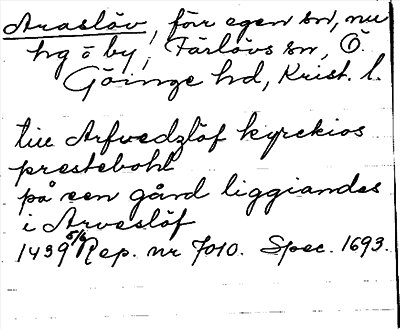 Araslöv, förr egen sn, nu
hg o by, Färlövs sn, Ö.
Göinge hd, Krist. l.
till Arfvedzlöf kyrckios
prestebohl
på een gård liggiandes
i Arveslöf
1439 5/6 Rep. nr 7010. Spec. 1693.